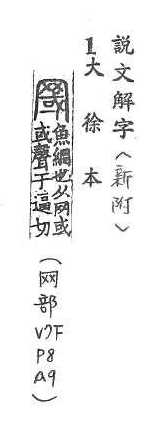 說文解字〈新附〉
1大徐本
罭魚網也从网或
或聲于逼切
(网部
V7F
P8
A9)